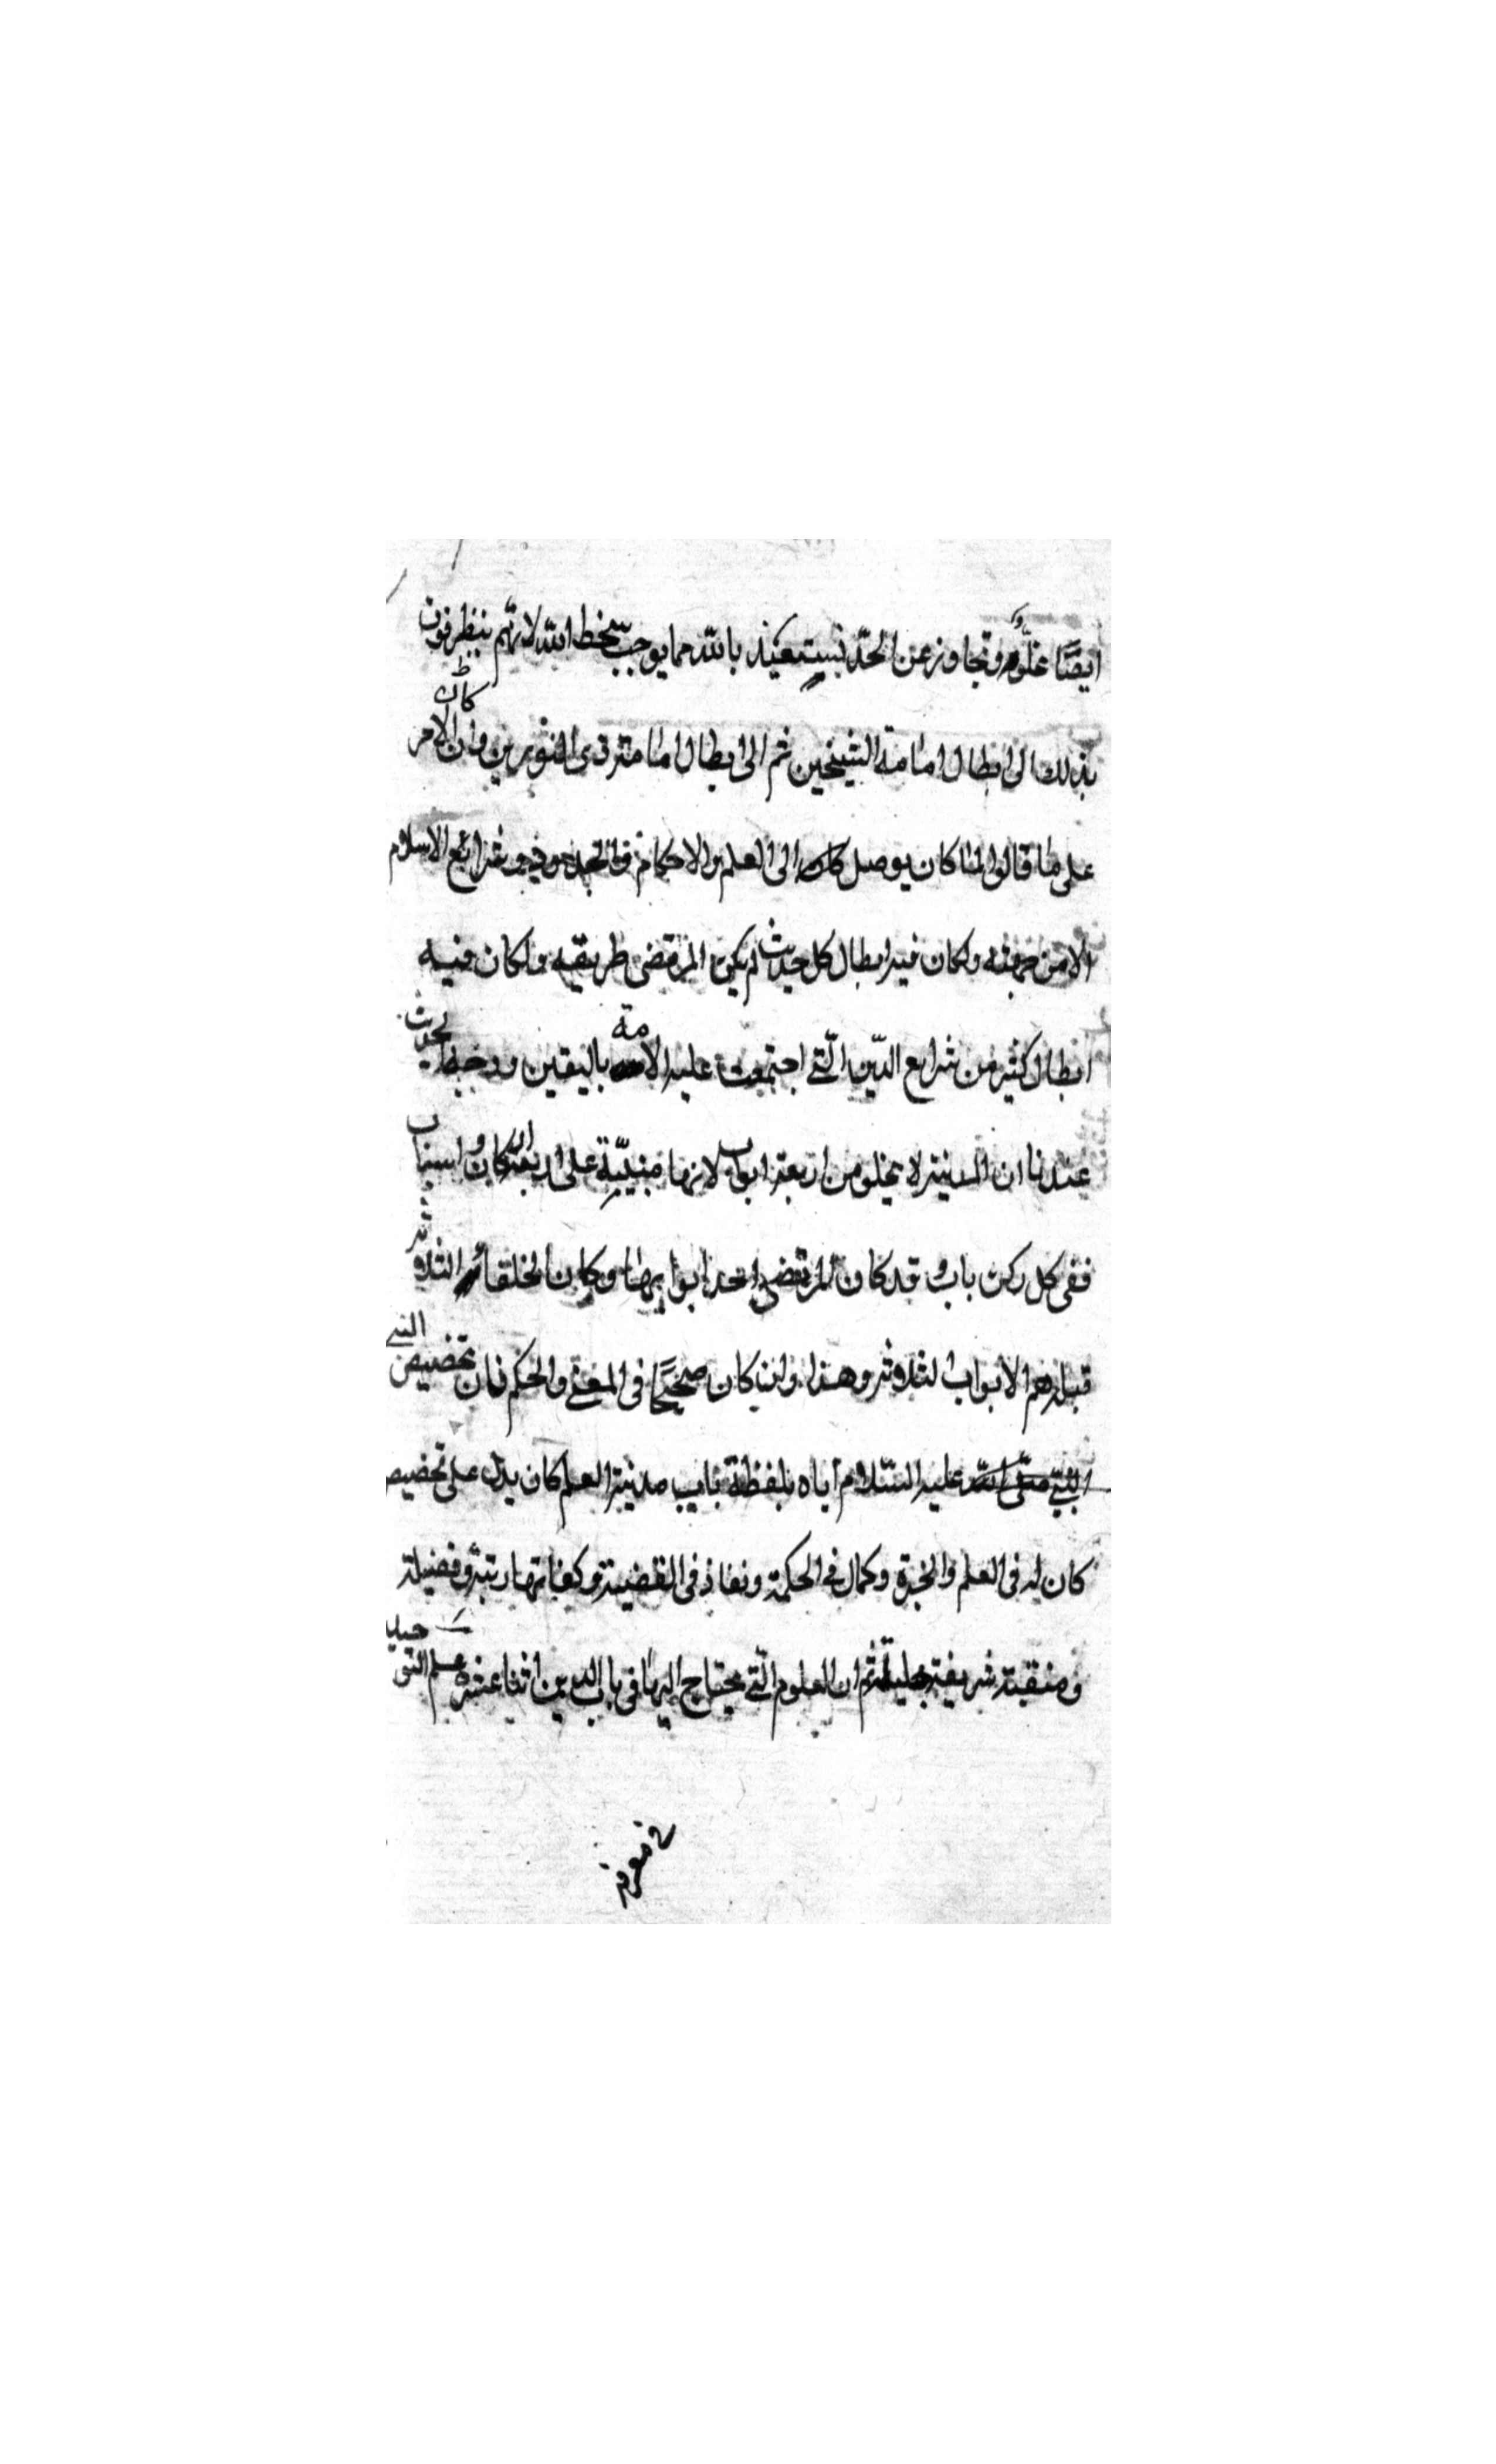 ايضًا غلوّ وتجاوز عن الحدّ نستعيذ بالله مما يوجب سخط الله لانهم ينظرفون
بذلك الى ابطال امامة الشيخين ثم الى ابطال امامة ذى النورين وان كان الامر
على ما قالوا لما كان يوصل الى العلم والاحكام والحدود وشرائع الاسلام
الا من جهته ولكان فيه ابطال كل حديث لم يكن المرتضى طريقيه ولكان فيه
ابطال كثير من شرايع الدّين الّتى اجتمعت عليه الامة باليقين ووجه الحديث
عندنا ان المدينة لا يخلو من اربعة ابواب لانها مبنيّة على اربعة اركان واسباب
ففى كل ركن باب وقد كان المرتضى احد ابوابها وكان الخلفاء الثلاثة
قبله هم الابواب الثلاثة وهذا وان كان صحيحًا فى المعنى والحكم فان تخصيص النبى
عليه السّلام اياه بلفظة باب مدينة العلم كان يدل على تخصيص
كان له فى العلم والخبرة وكمال فى الحكمة ونفاذ فى القضية وكفا بها رتبة وفضيلة
ومنقبة شريفة جليلة ثم ان العلوم الّتى يحتاج اليها فى باب الدين اثنا عشر علم التوحيد
معرفة